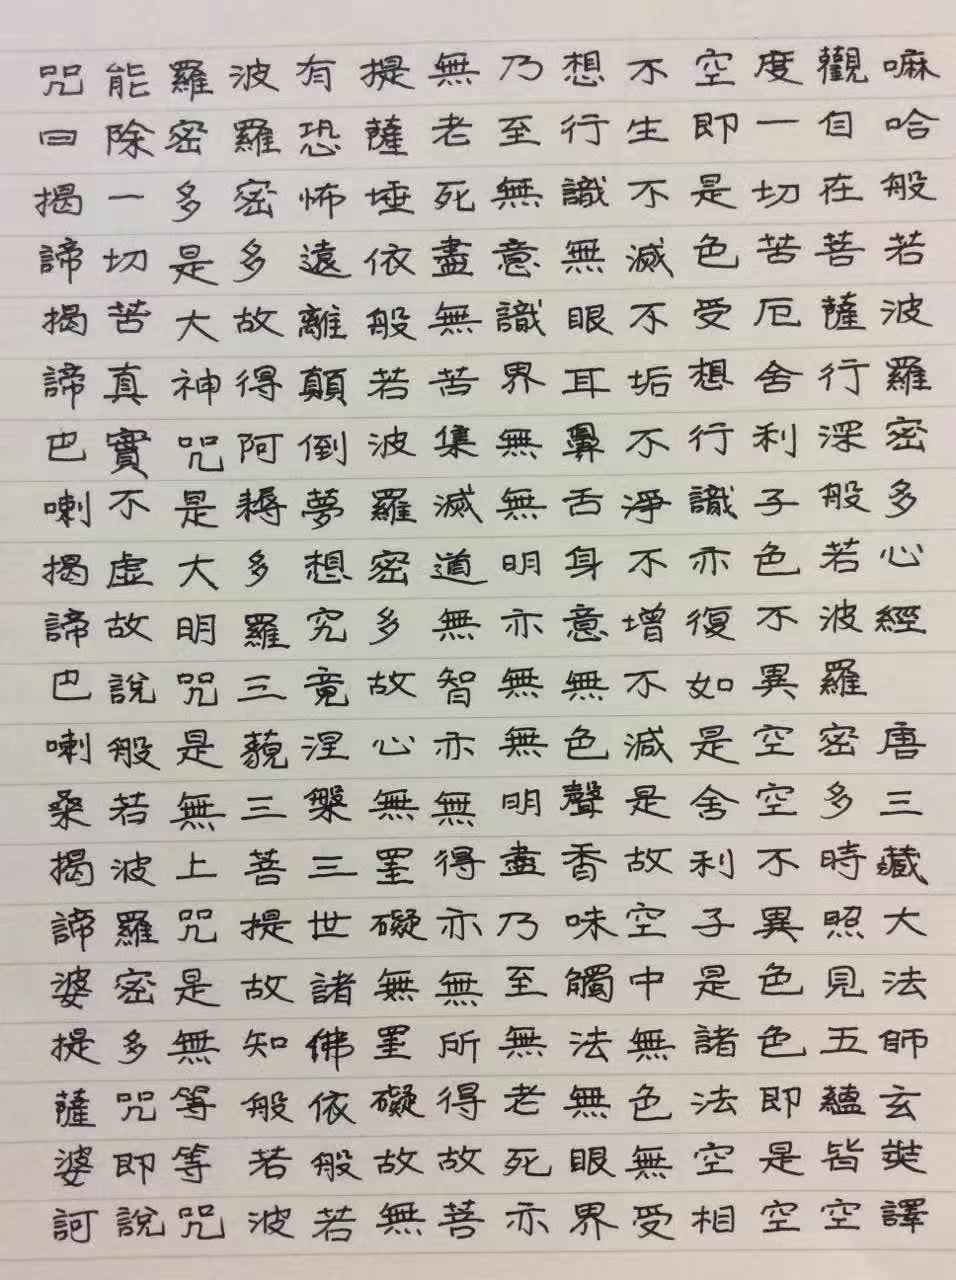 嘛哈般若波羅密多心經 唐三藏大法師玄奘譯
觀自在菩薩行深般若波羅密多時照見五蘊皆空
度一切苦厄舍利子色不異空空不異色色即是空
空即是色受想行識亦復如是舍利子是諸法空相
不生不滅不垢不淨不增不減是故空中無色無受
想行識無眼耳鼻舌身意無色聲香味觸法無眼界
乃至無意識界無無明亦無無明盡乃至無老死亦
無老死盡無苦集滅道無智亦無得亦無所得故菩
提薩埵依般若波羅密多故心無罣礙無罣礙故無
有恐怖遠離顛倒夢想究竟涅槃三世諸佛依般若
波羅密多故得阿耨多羅三藐三菩提故知般若波
羅密多是大神咒是大明咒是無上咒是無等等咒
能除一切苦真實不虛故說般若波羅密多咒即說
咒曰揭諦揭諦巴喇揭諦巴喇桑揭諦婆提薩婆訶